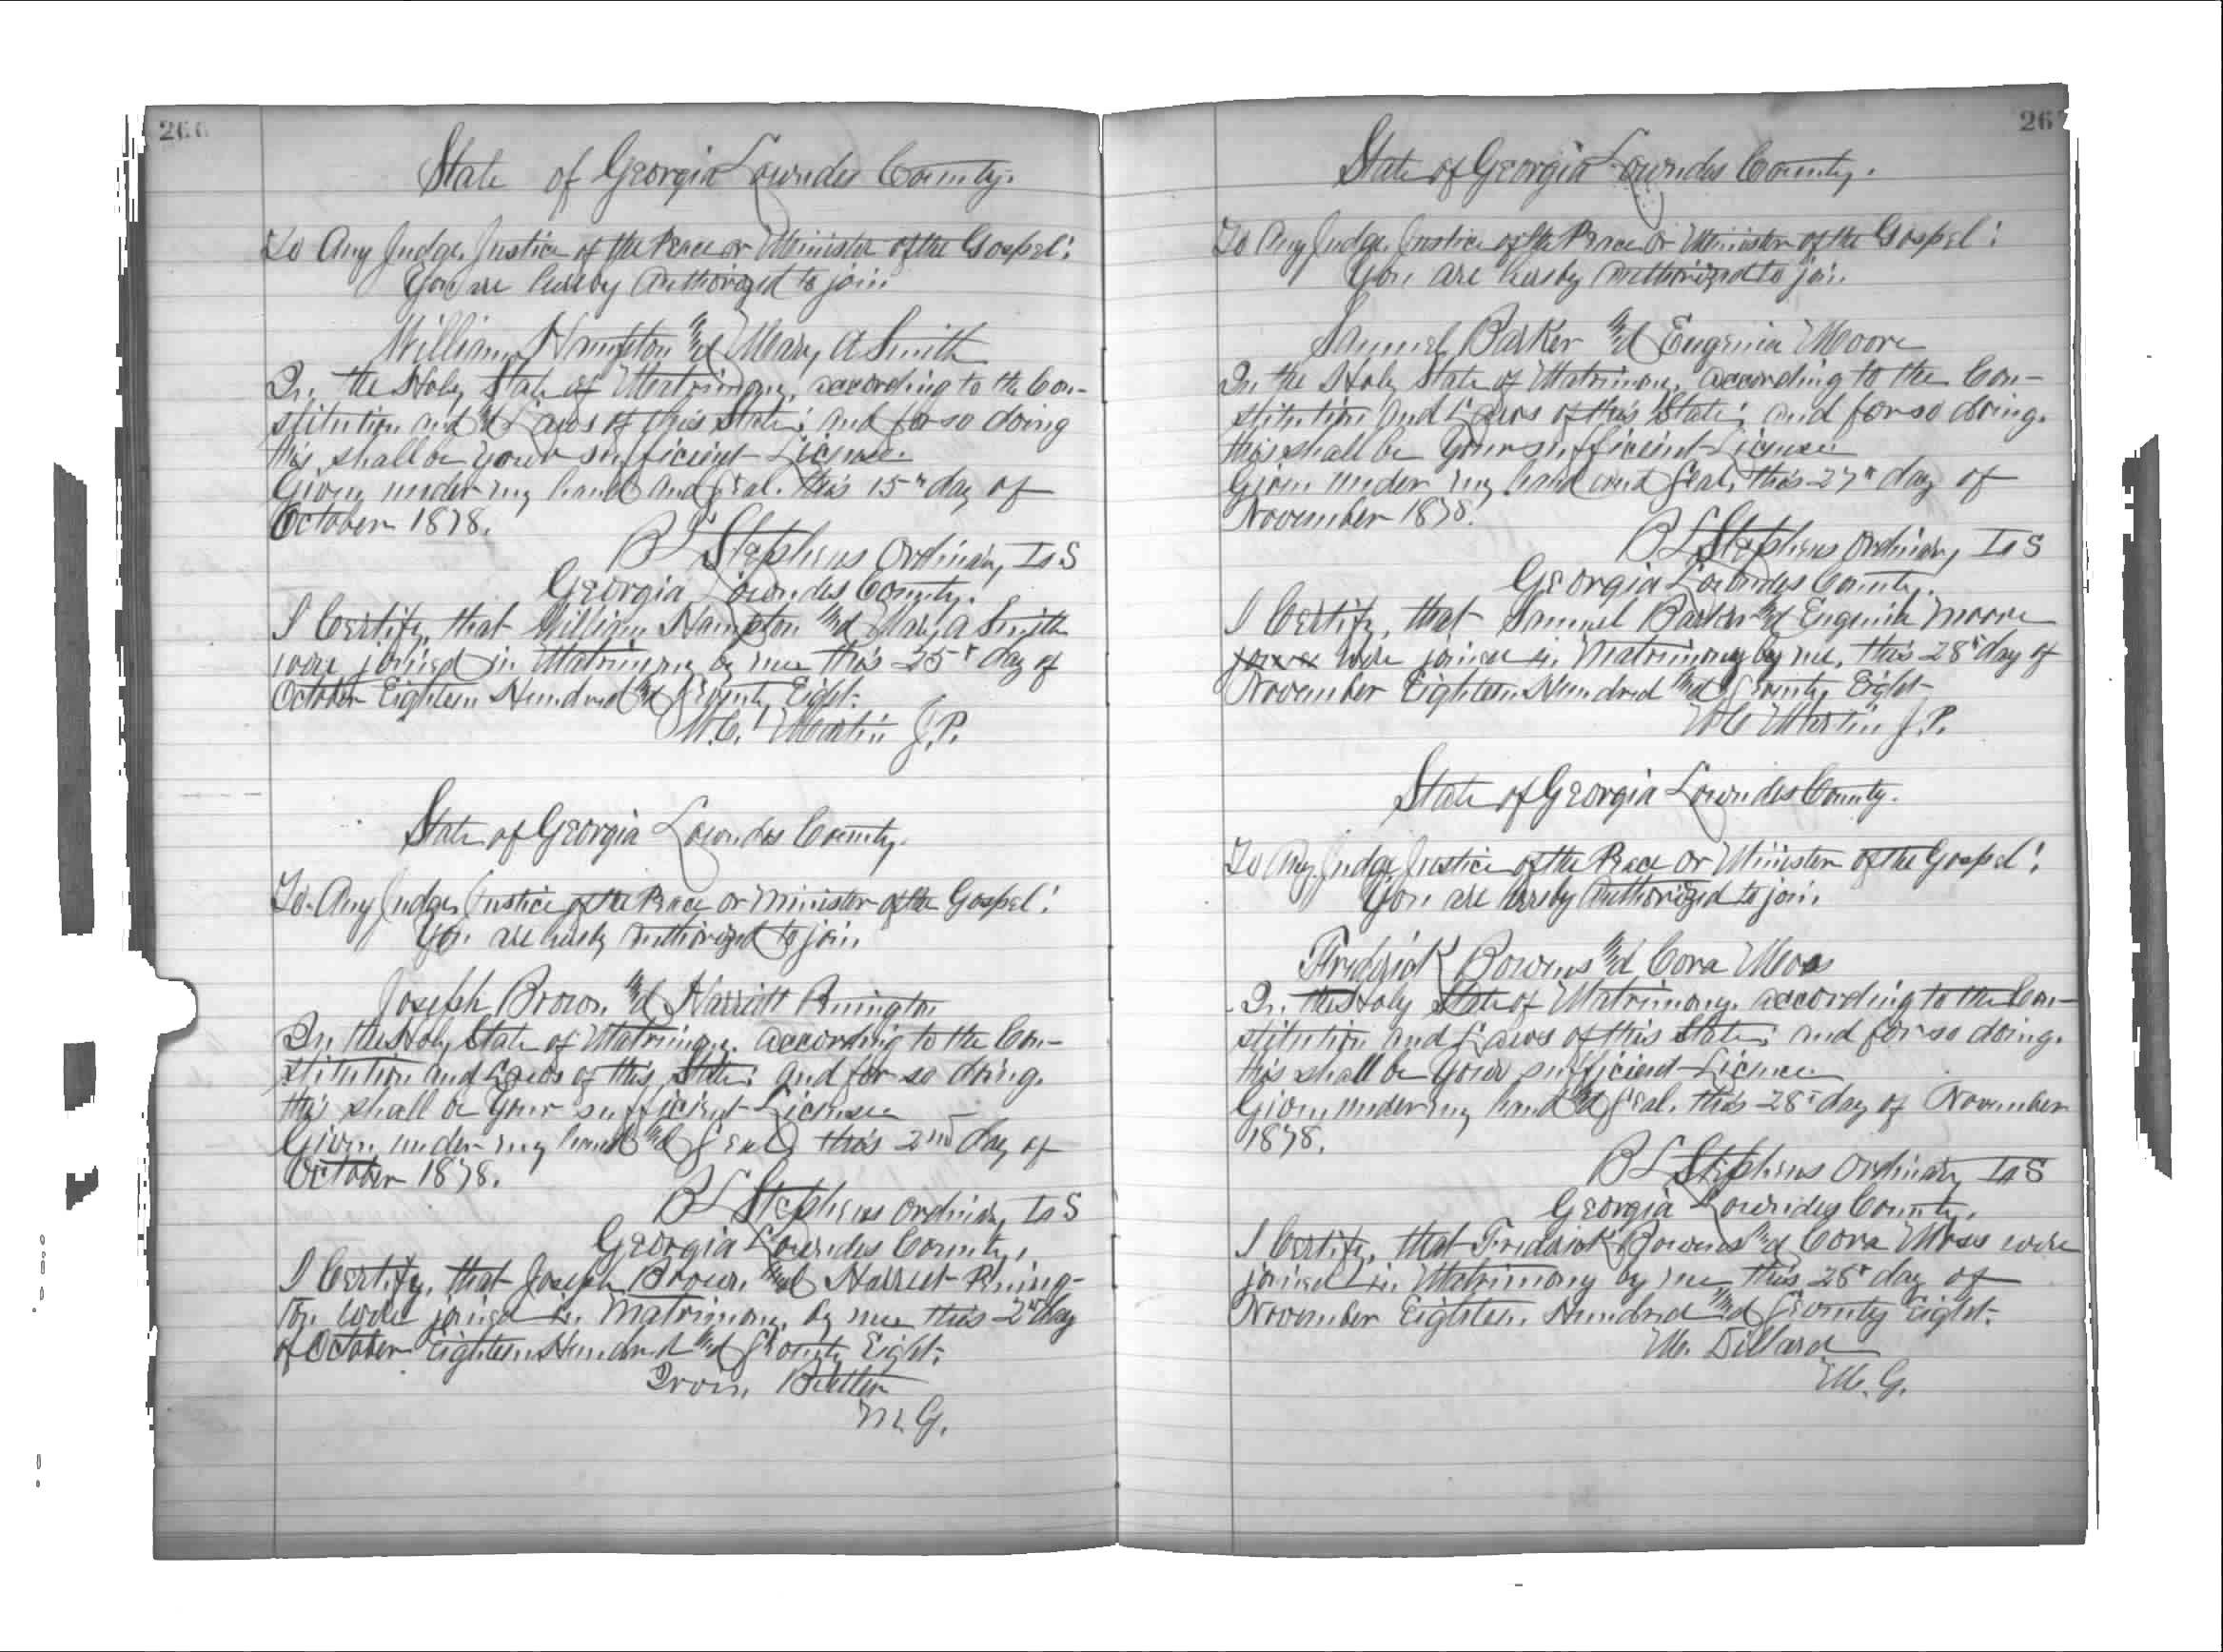 266
State of Georgia Lowndes County.
To Any Judge, Justice of the Peace or Minister of the Gospel:
You are hereby Authorized to join
William Hampton and Mary A Smith
In the Holy State of Matrimony, according to the Con-
stitution and Laws of this State; and for so doing
this shall be your sufficient License
Given under my hand and Seal. this 15th day of
October 1878.
B L Stephens Ordinary L S
Georgia Lowndes County.
I Certify, that William Hampton and Mary A Smith
were joined in Matrimony by me this 25th day of
October Eighteen Hundred and Seventy Eight.
W. C. Martin J. P.
State of Georgia Lowndes County.
To Any Judge, Justice of the Peace or Minister of the Gospel:
You are hereby Authorized to join
Joseph Brown and Harriett
In the Holy State of Matrimony. according to the Con-
stitution and Laws of this State; and for so doing.
this shall be Your sufficient License
Given under my hand and Seal this 2nd day of
October 1878.
B L Stephens Ordinary L S
Georgia Lowndes County.
I Certify, that Joseph Brown and Harriet
ton were joined in Matrimony, by me this 2nd day
of October Eighteen Hundred and Seventy Eight.
M. G.
267
State of Georgia Lowndes County.
To Any Judge, Justice of the Peace or Minister of the Gospel:
You are hereby Authorized to join
Samuel Barker and Eugenia Moore
In the Holy State of Matrimony, according to the Con-
stitution and Laws of this State; and for so doing.
this shall be Your sufficient License
Given under my hand and Seal, this 27th day of
November 1878.
B L Stephens Ordinary L S
Georgia Lowndes County.
I Certify, that Samuel Barker and Eugenia Moore
were joined in Matrimony by me, this 28th day of
November Eighteen Hundred and Seventy Eight
W C Martin J. P.
State of Georgia Lowndes County.
To Any Judge, Justice of the Peace or Minister of the Gospel:
You are hereby Authorized to join
Fredrick Bowens and Cora Moss
In the Holy State of Matrimony. according to the Con-
stitution and Laws of this State; and for so doing.
this shall be Your sufficient License
Given under my hand and Seal. this 28th day of November
1878.
B L Stephens Ordinary L S
Georgia Lowndes County.
I Certify, that Fredrick Bowens and Cora Moss were
joined in Matrimony by me this 28th day of
November Eighteen Hundred and Seventy Eight.
M. Dillard
M. G.